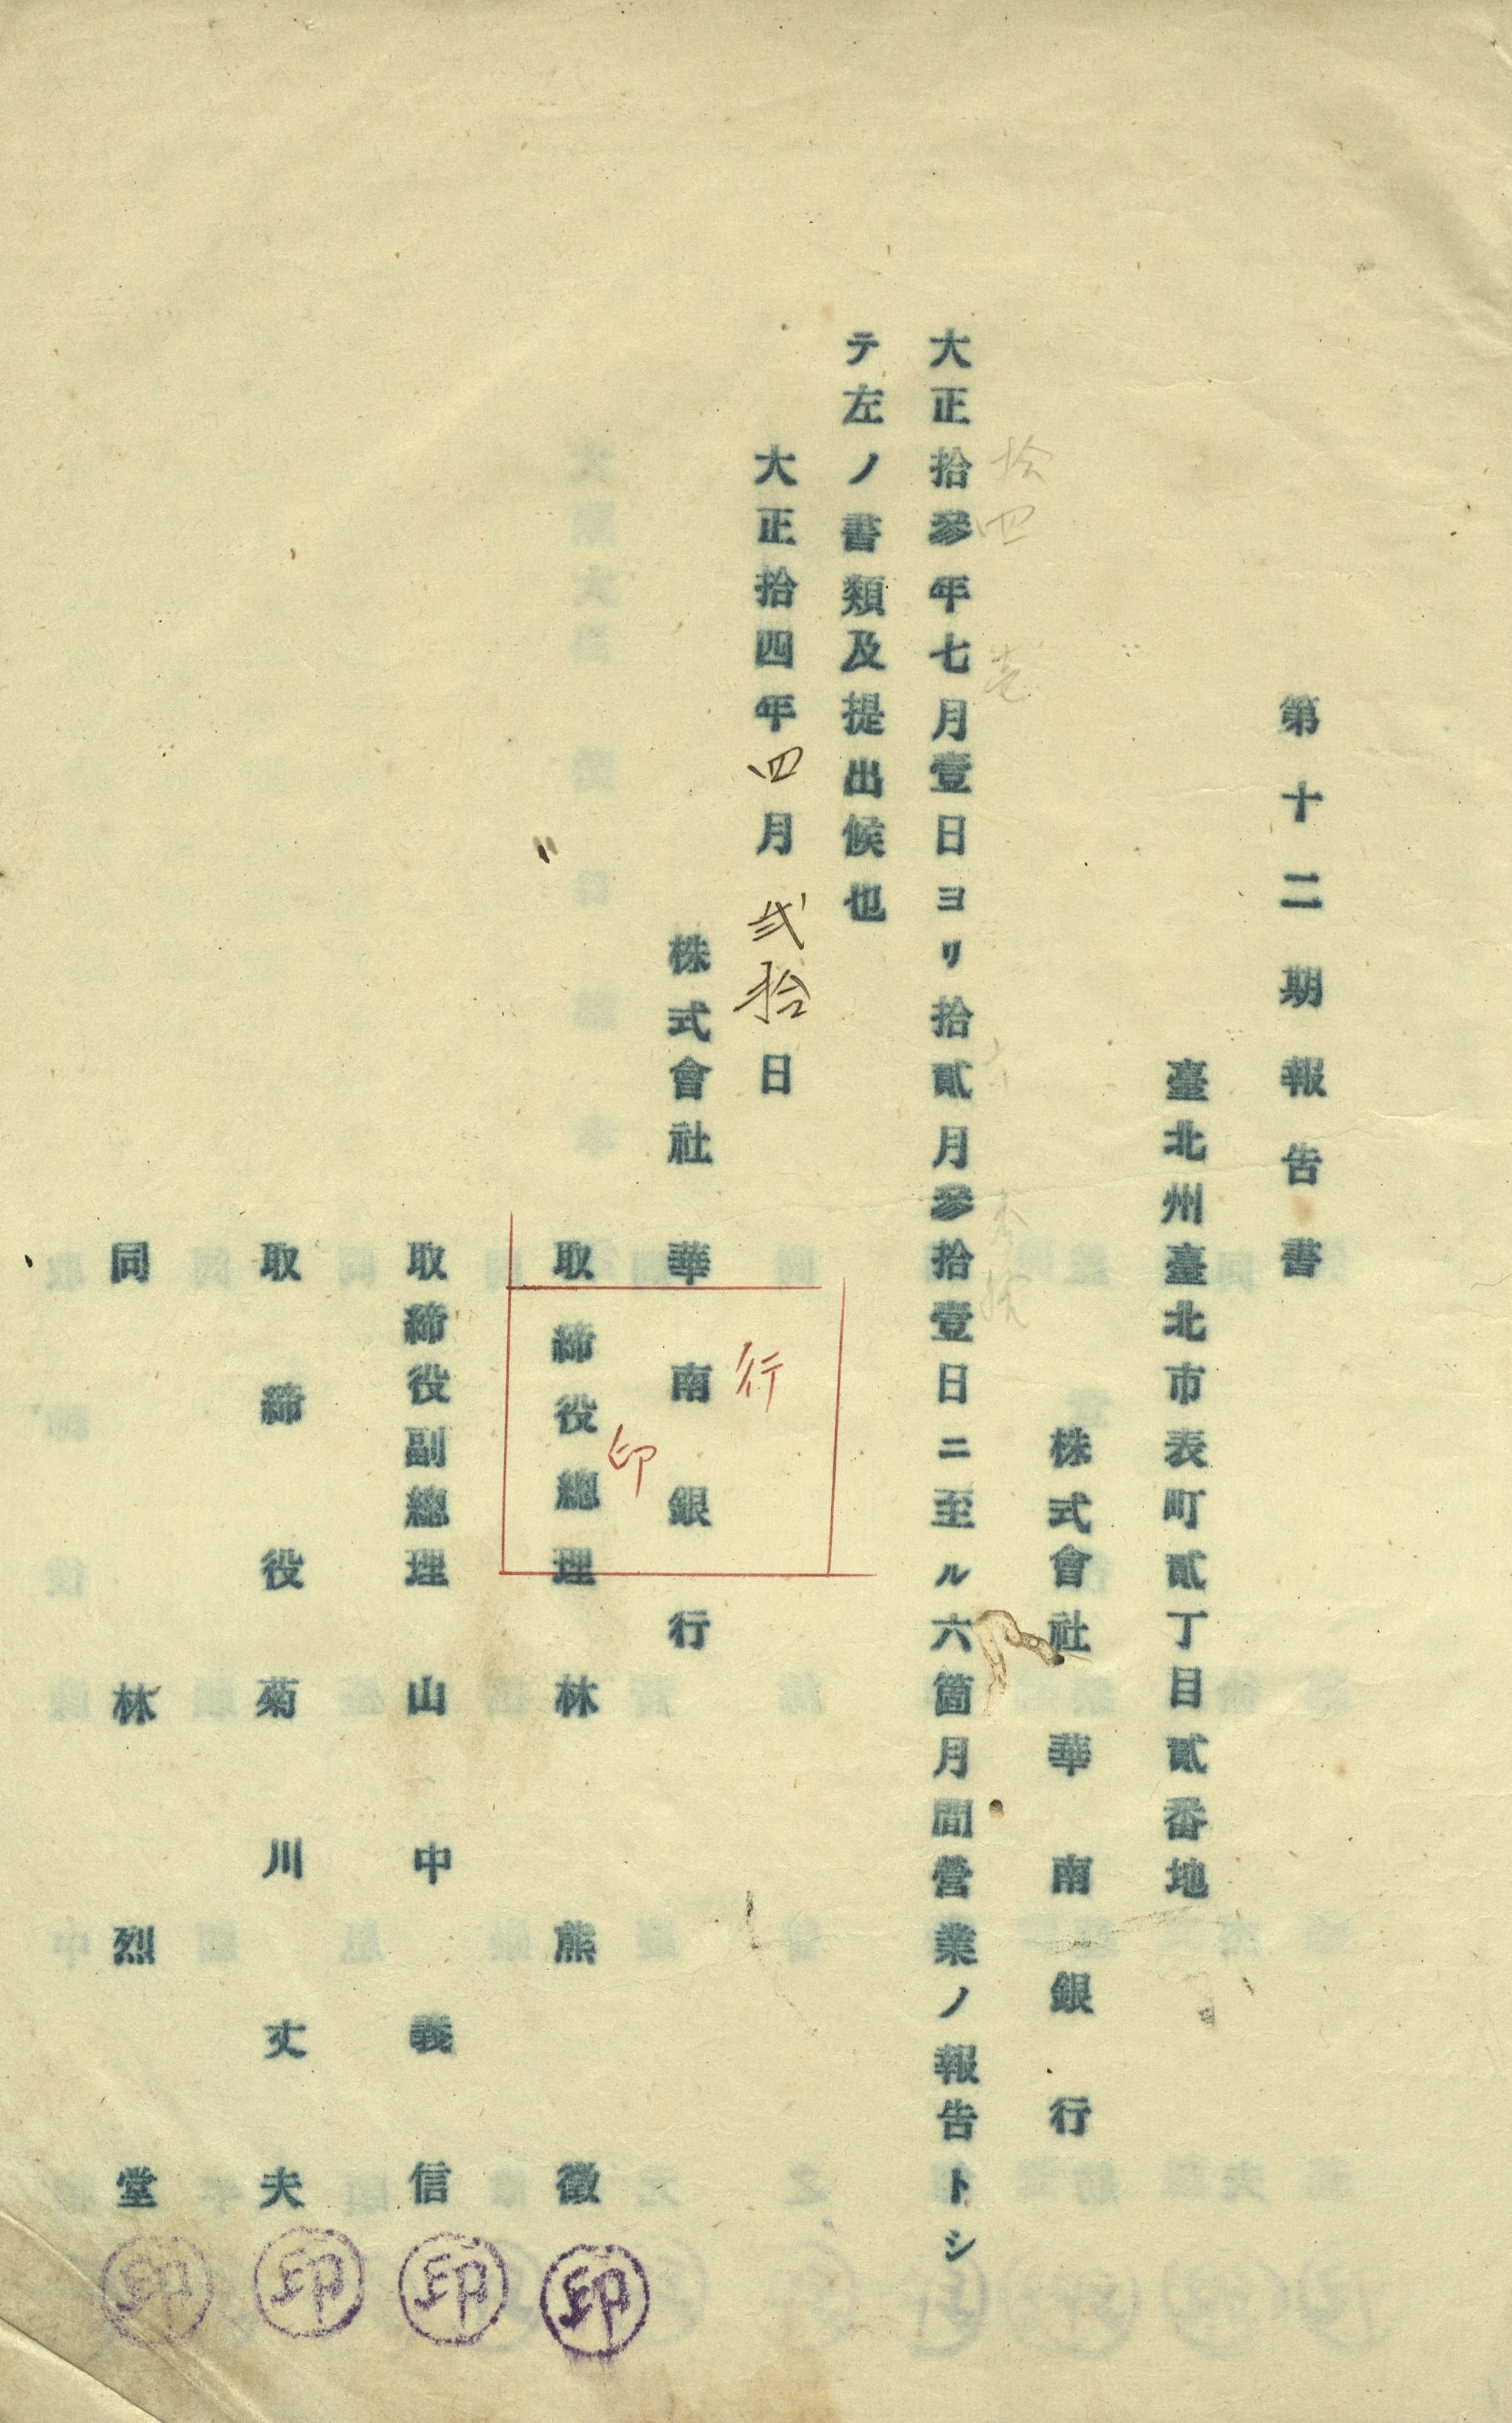 第十二期報告書
臺北州臺北市表町貳丁目貳番地
株式會社華南銀行
拾四
壱
大正拾參年七月壹日ヨリ拾貳月參拾壹日ニ至ル六箇月間營業ノ報告トシ
テ左ノ書類及提出候也
大正拾四年四月弐拾日
株式會社華南銀行
行印
取締役總理林熊徵印
取締役副總理山中義信印
取締役菊川丈夫印
同林烈堂印